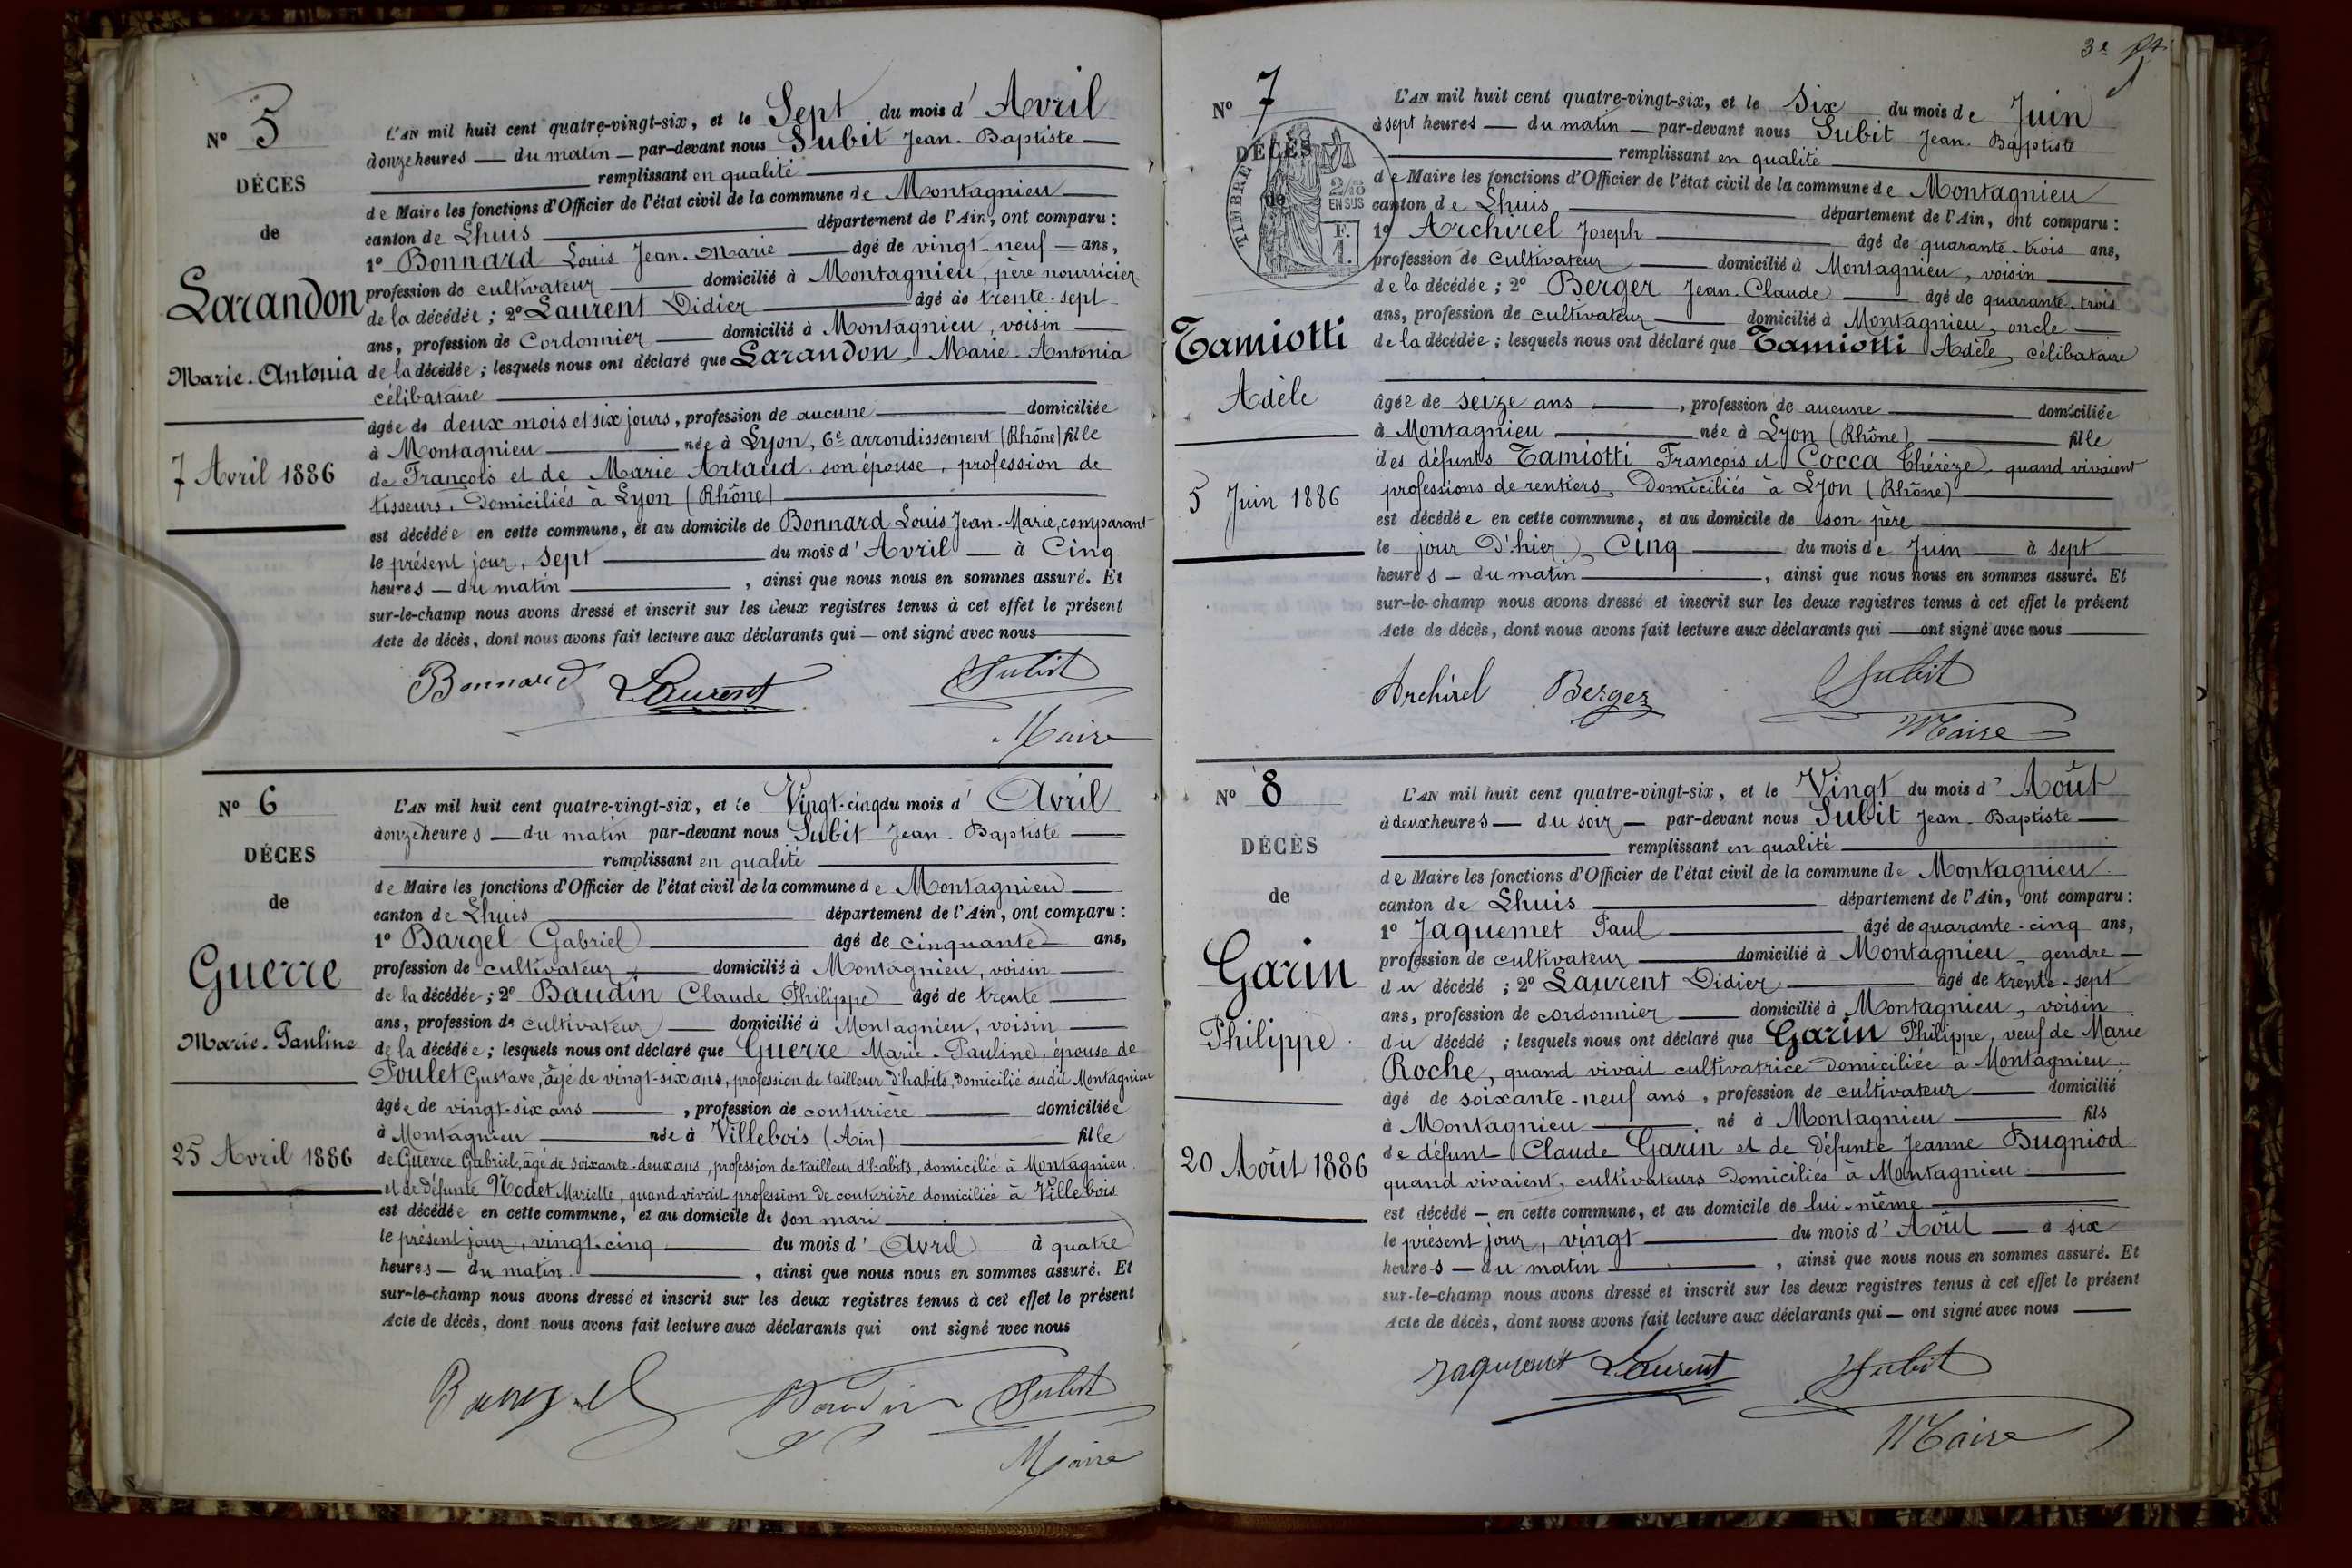 N° 5
DÉCÈS
de
Larandon
Marie-Antonia
7 Avril 1886
L'AN mil huit cent quatre-vingt-six, et le Sept du mois d' Avril
à onze heures — du matin — par-devant nous Subit Jean-Baptiste —
remplissant en qualité
de Maire les fonctions d'Officier de l'état civil de la commune de Montagnieu
canton de Lhuis département de l'Ain, ont comparu :
1° Bonnard Louis Jean-Marie âgé de vingt-neuf — ans,
profession de cultivateur domicilié à Montagnieu, père nourricier
de la décédée ; 2° Laurent Didier âgé de trente-sept
ans, profession de Cordonnier domicilié à Montagnieu, voisin
de la décédée ; lesquels nous ont déclaré que Larandon, Marie-Antonia
célibataire
âgée de deux mois et six jours, profession de aucune domiciliée
à Montagnieu née à Lyon, 6e arrondissement (Rhône) fille
de François et de Marie Artaud son épouse, profession de
tisseurs, domiciliés à Lyon (Rhône)
est décédée en cette commune, et au domicile de Bonnard Louis Jean-Marie, comparant
le présent jour, sept du mois d' Avril — à Cinq
heures — du matin , ainsi que nous nous en sommes assuré. Et
sur-le-champ nous avons dressé et inscrit sur les deux registres tenus à cet effet le présent
Acte de décès, dont nous avons fait lecture aux déclarants qui — ont signé avec nous
Bonnard Laurent Subit
Maire
N° 6
DÉCES
de
Guerre
Marie-Pauline
25 Avril 1886
L'AN mil huit cent quatre-vingt-six, et le Vingt-cinq du mois d' Avril
à onze heures — du matin par-devant nous Subit Jean-Baptiste —
remplissant en qualité
de Maire les fonctions d'Officier de l'état civil de la commune de Montagnieu
canton de Lhuis département de l'Ain, ont comparu :
1° Bargel Gabriel âgé de cinquante ans,
profession de cultivateur domicilié à Montagnieu, voisin
de la décédée ; 2° Baudin Claude Philippe âgé de trente
ans, profession de cultivateur domicilié à Montagnieu, voisin
de la décédée ; lesquels nous ont déclaré que Guerre Marie-Pauline, épouse de
Poulet Gustave, âgé de vingt-six ans, profession de tailleur d'habits, domicilié audit Montagnieu
âgée de vingt-six ans , profession de couturière domiciliée
à Montagnieu née à Villebois (Ain) fille
de Guerre Gabriel, âgé de soixante-deux ans, profession de tailleur d'habits, domicilié à Montagnieu
et de défunte Nodet Mariette, quand vivait profession de couturière domiciliée à Villebois
est décédée en cette commune, et au domicile de son mari
le présent jour, vingt-cinq du mois d' Avril à quatre
heures — du matin , ainsi que nous nous en sommes assuré. Et
sur-le-champ nous avons dressé et inscrit sur les deux registres tenus à cet effet le présent
Acte de décès, dont nous avons fait lecture aux déclarants qui ont signé avec nous
Bargel Baudin Subit
Maire
3e
N° 7
DÉCÈS
de
TIMBRE
2/10
EN SUS
F.
1.
Tamiotti
Adèle
5 Juin 1886
L'AN mil huit cent quatre-vingt-six, et le Six du mois de Juin
à sept heures — du matin — par-devant nous Subit Jean-Baptiste
remplissant en qualité
de Maire les fonctions d'Officier de l'état civil de la commune de Montagnieu
canton de Lhuis département de l'Ain, ont comparu :
1° Archirel Joseph âgé de quarante-trois ans,
profession de cultivateur domicilié à Montagnieu, voisin
de la décédée ; 2° Berger Jean-Claude âgé de quarante-trois
ans, profession de cultivateur domicilié à Montagnieu, oncle
de la décédée ; lesquels nous ont déclaré que Tamiotti Adèle, célibataire
âgée de seize ans , profession de aucune domiciliée
à Montagnieu née à Lyon (Rhône) fille
des défunts Tamiotti François et Cocca Thérèze, quand vivaient
professions de rentiers, domiciliés à Lyon (Rhône)
est décédée en cette commune, et au domicile de son père
le jour d'hier, Cinq du mois de Juin — à sept
heures — du matin , ainsi que nous nous en sommes assuré. Et
sur-le-champ nous avons dressé et inscrit sur les deux registres tenus à cet effet le présent
Acte de décès, dont nous avons fait lecture aux déclarants qui — ont signé avec nous
Archirel Berger Subit
Maire
N° 8
DÉCÈS
de
Garin
Philippe
20 Août 1886
L'AN mil huit cent quatre-vingt-six, et le Vingt du mois d' Août
à deux heures — du soir — par-devant nous Subit Jean-Baptiste
remplissant en qualité
de Maire les fonctions d'Officier de l'état civil de la commune de Montagnieu
canton de Lhuis département de l'Ain, ont comparu :
1° Jaquemet Paul âgé de quarante-cinq ans,
profession de cultivateur domicilié à Montagnieu, gendre —
du décédé ; 2° Laurent Didier âgé de trente-sept
ans, profession de cordonnier domicilié à Montagnieu, voisin
du décédé ; lesquels nous ont déclaré que Garin Philippe, veuf de Marie
Roche, quand vivait cultivatrice domiciliée à Montagnieu
âgé de soixante-neuf ans, profession de cultivateur domicilié
à Montagnieu né à Montagnieu fils
de défunt Claude Garin et de défunte Jeanne Bugniod
quand vivaient, cultivateurs domiciliés à Montagnieu
est décédé — en cette commune, et au domicile de lui-même
le présent jour, vingt du mois d' Août — à six
heures — du matin , ainsi que nous nous en sommes assuré. Et
sur-le-champ nous avons dressé et inscrit sur les deux registres tenus à cet effet le présent
Acte de décès, dont nous avons fait lecture aux déclarants qui — ont signé avec nous
Jaquemet Laurent Subit
Maire